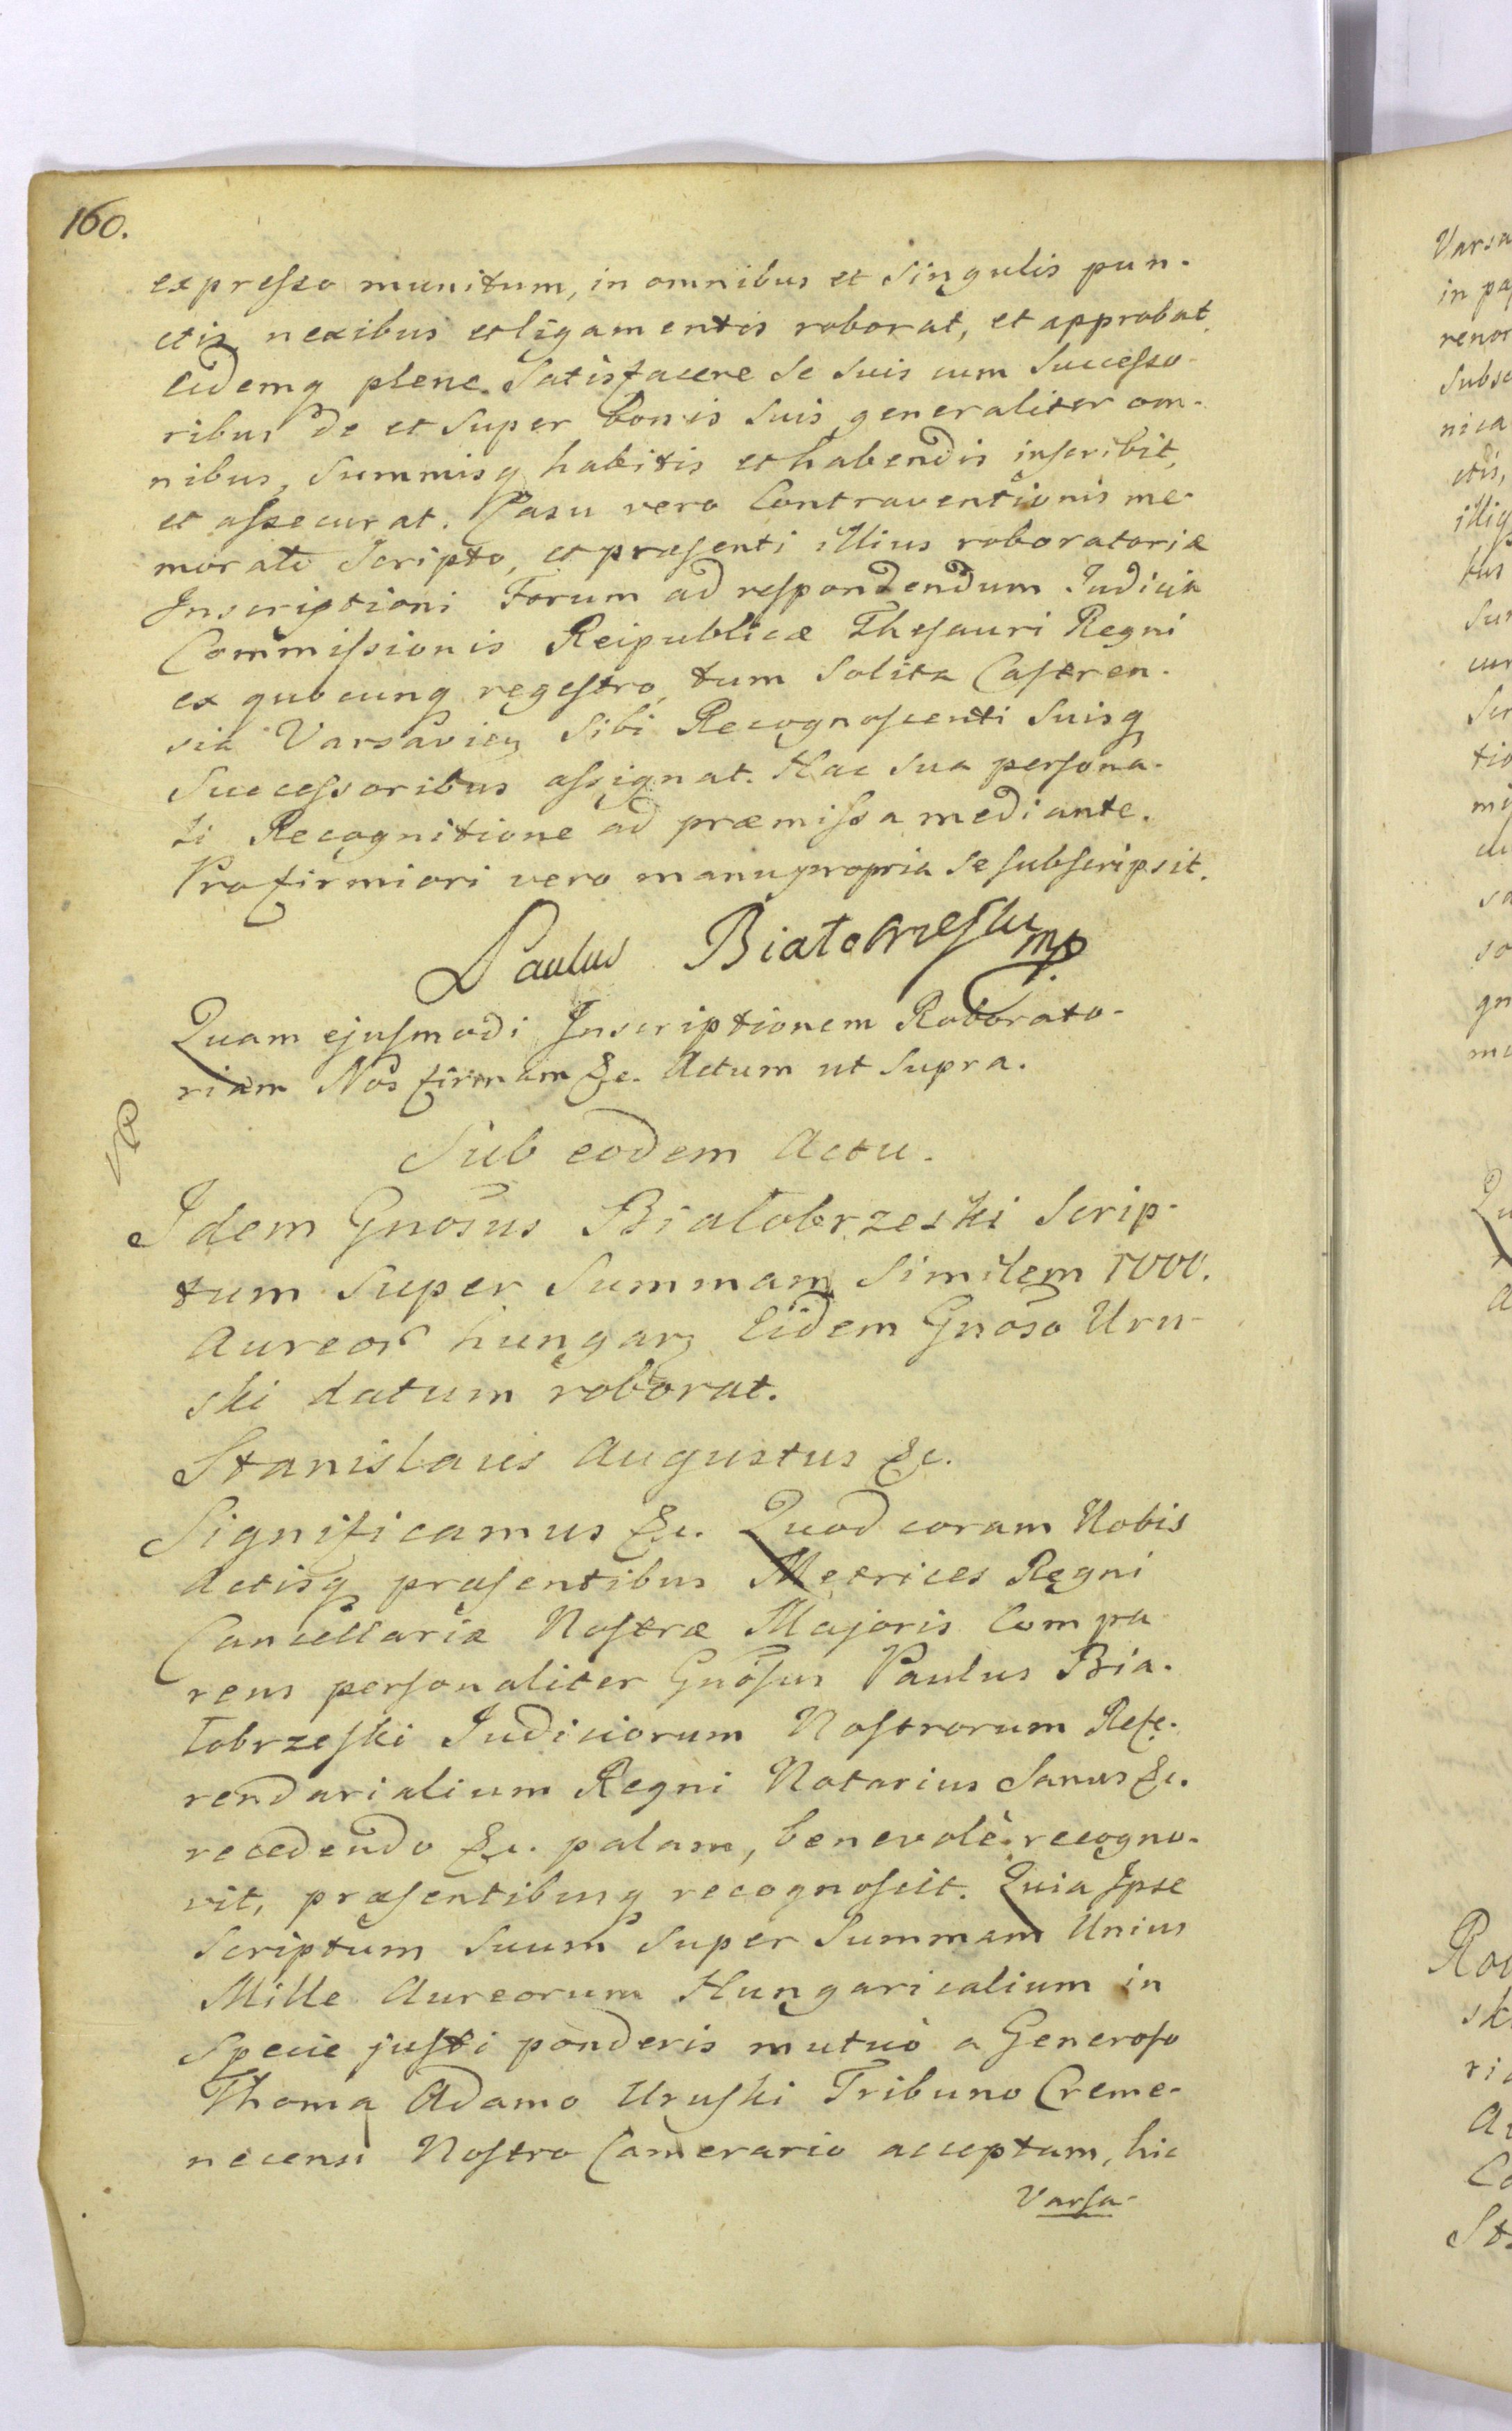 160.
expresso munitum, in omnibus et Singulis pun-
ctis, nexibus et ligamentis roborat, et approbat,
Eidemq plene Satisfacere Se Suis cum Successo-
ribus de et Super bonis Suis generaliter om-
nibus, Summisq habitis et habendis inscribit,
et assecurat. Casu vero Contraventionis me-
morato Scripto, et præsenti illius roboratoriæ
Inscriptioni Forum ad respondendum Judicia
Commissionis Reipublicæ Thesauri Regni
ex quocunq regestro, tum Solita Castren-
sia Varsavien Sibi Recognoscenti Suisq
Successoribus assignat. Hac Sua persona-
li Recognitione ad præmissa mediante.
Pro firmiori vero manu propria Se subscripsit.
Paulus Białobrzeski mp
Quam ejusmodi Inscriptionem Roborato-
riam Nos firmam &c. Actum ut Supra.
Sub eodem Actu.
Idem Gnosus Białobrzeski Scrip-
tum Super Summam Similem 1000.
Aureor hungar Eidem Gnoso Uru-
ski datum roborat.
Stanislaus Augustus &c.
Significamus &c. Quod coram Nobis
Actisq præsentibus Metrices Regni
Cancellariæ Nostræ Majoris Compa
rens personaliter Gnosus Paulus Bia-
łobrzeski Judiciorum Nostrorum Refe-
rendarialium Regni Notarius Sanus &c.
recedendo &c. palam, benevolè recogno-
vit, præsentibusq recognoscit. Quia Ipse
Scriptum Suum Super Summam Unius
Mille Aureorum Hungaricalium in
Specie justi ponderis mutuò a Generoso
Thoma Adamo Uruski Tribuno Creme-
necensi Nostro Camerario acceptam, hic
Varsa-